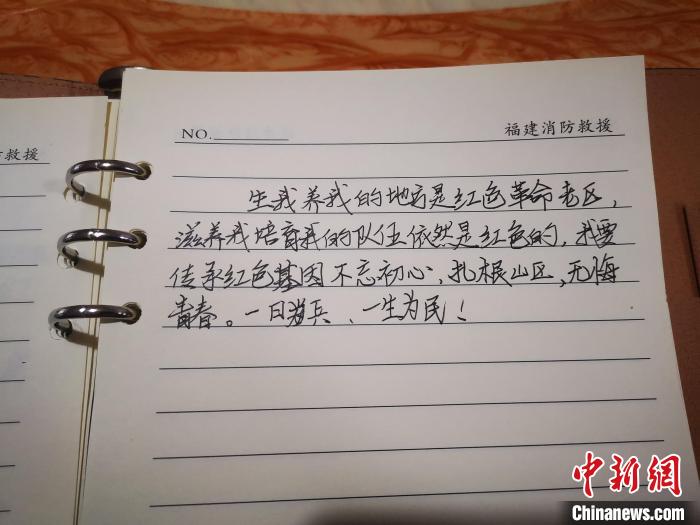 NO.
福建消防救援
救援
生我养我的地方是红色革命老区,
滋养我培育我的队伍依然是红色的,我要
传承红色基因不忘初心,扎根山区,无悔
青春。一日为兵、一生为民!
中新网
Chinanews.com